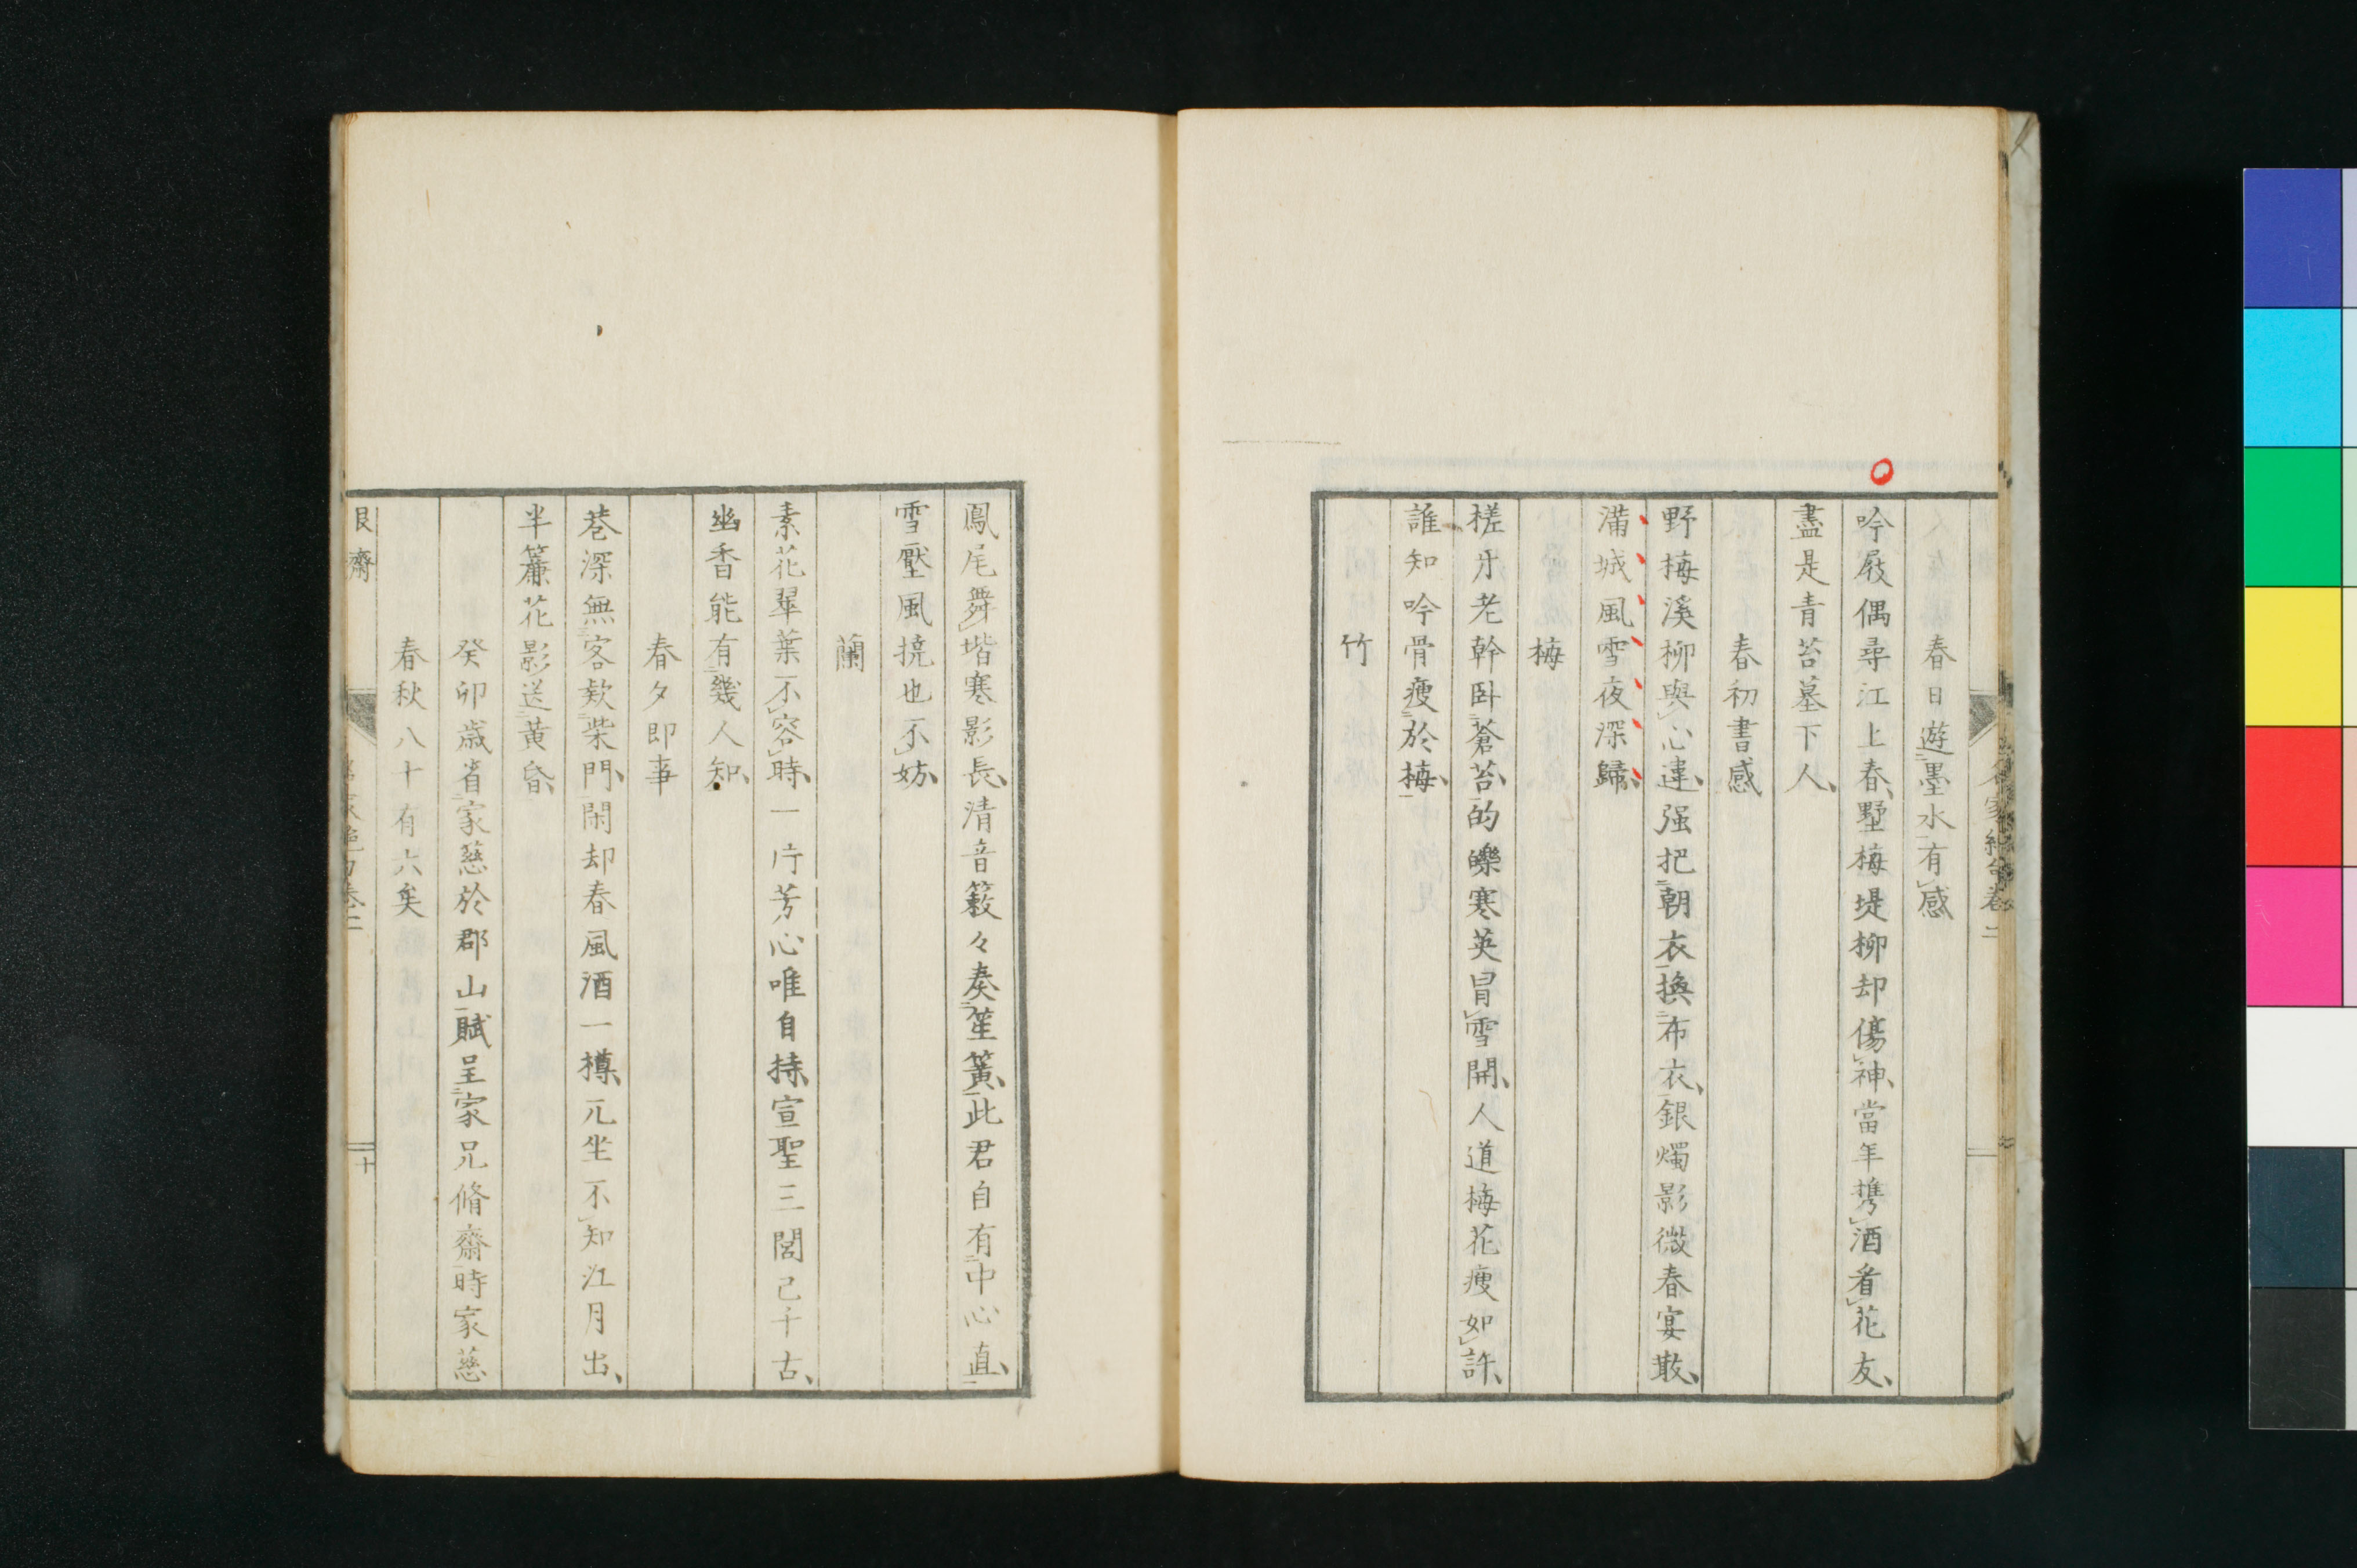 春日遊墨水有感
吟屐偶尋江上春墅梅堤柳却傷神當年携酒看花友
盡是青苔墓下人
春初書感
野梅溪柳與心違强把朝衣換布衣銀燭影微春宴散
滿城風雪夜深歸
梅
槎牙老幹臥蒼苔的皪寒英冒雪開人道梅花瘦如許
誰知吟骨瘦於梅
竹
鳳尾舞堦寒影長清音簌々奏笙簧此君自有中心直
雪壓風撓也不妨
蘭
素花翠葉不容時一片芳心唯自持宣聖三閭已千古
幽香能有幾人知
春夕即事
巷深無客欵柴門閑却春風酒一樽兀坐不知江月出
半簾花影送黄昏
癸卯歳省家慈於郡山賦呈家兄脩齋時家慈
春秋八十有六矣
十